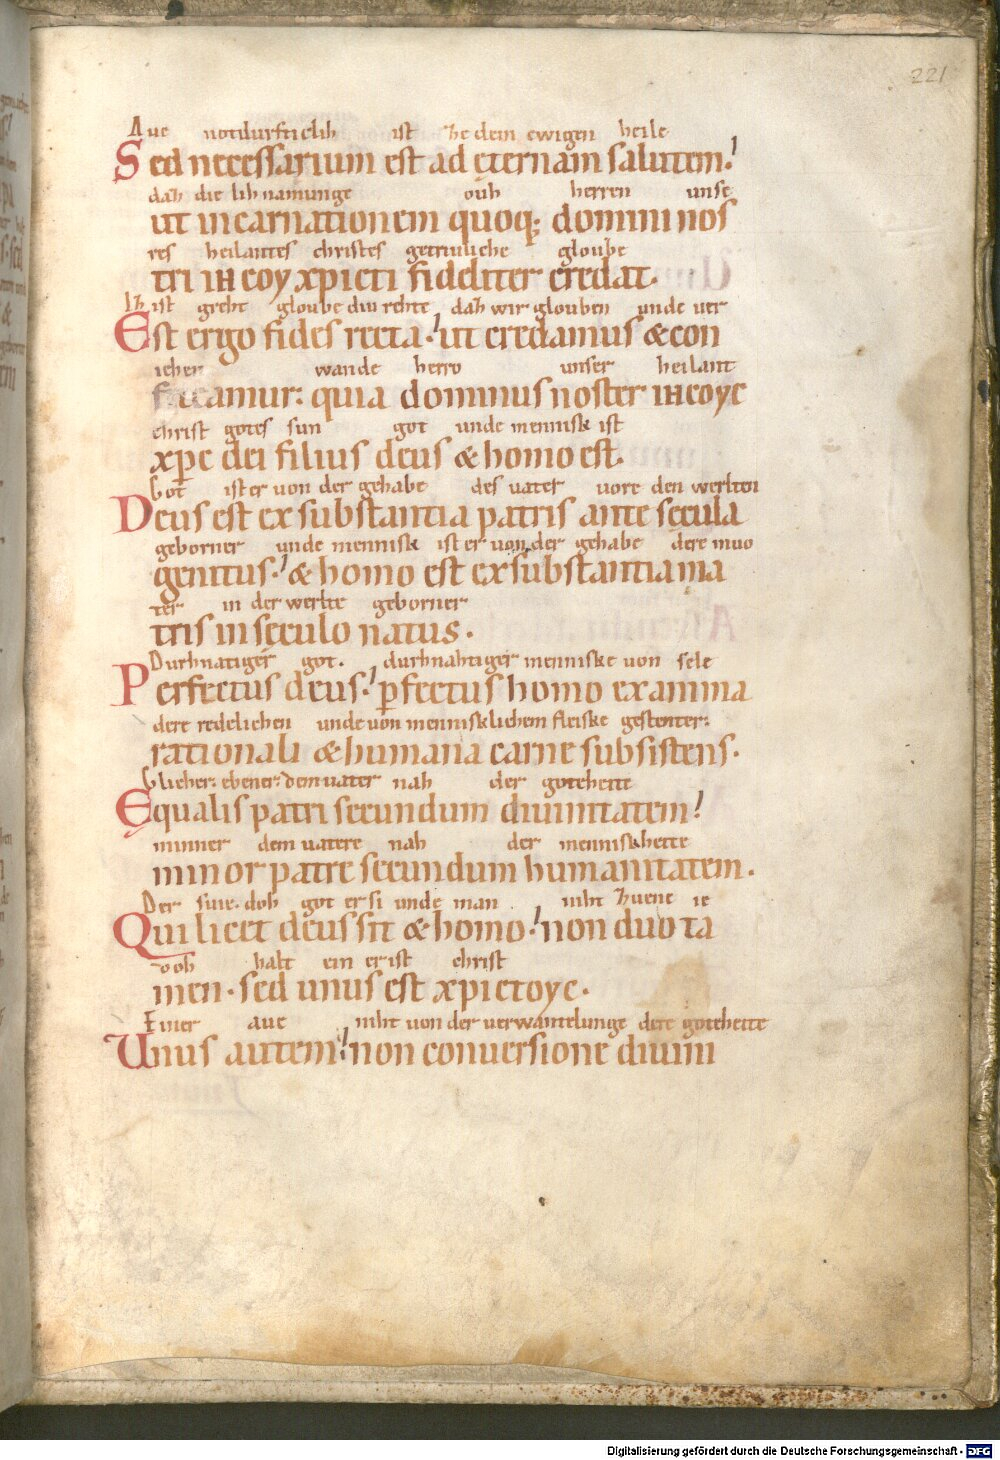 221
Aue notdurftielih ist ze dem ewigen heile
Sed necessarium est ad ęternam salutem.
daz die lihnamunge ouh herren unse
ut incarnationem quoq; domini nos
res heilantes christes getriuliche gloube
tri IHCOY XPICTI fideliter credat.
Iz ist greht gloube diu rehte daz wir glouben unde uer
Est ergo fides recta. ut credamus & con
iehen wande herro unser heilant
fiteamur: quia dominus noster IHCOYC
christ gotes sun got unde mennisk ist
xpc dei filius deus & homo est.
Got ist er von der gehabe des uater uore den werlten
Deus est ex substantia patris ante secula
geborner unde mennisk ist er von der gehabe dere muo
genitus. & homo est ex substantia ma
ter in der werlte geborner
tris in seculo natus.
Durhnatiger got. durhnahtiger menniske uon sele
Perfectus deus. pfectus homo ex anima
dere redelichen unde uon mennisklichem fleiske gestenter:
rationali & humana carne subsistens.
Glicher: ebener: dem uater nah der goteheite
Equalis patri secundum diuinitatem
minner dem uatere nah der menniskheite
minor patre secundum humanitatem.
Der swie. doh got er si unde man niht zuene ie
Qui licet deus sit & homo. non duo ta
doh halt ein er ist christ
men. sed unus est XPICTOYC.
Einer aue niht von der uerwantelunge dere goteheite
Unus autem non conuersione diuini
Digitalisierung gefördert durch die Deutsche Forschungsgemeinschaft - DFG